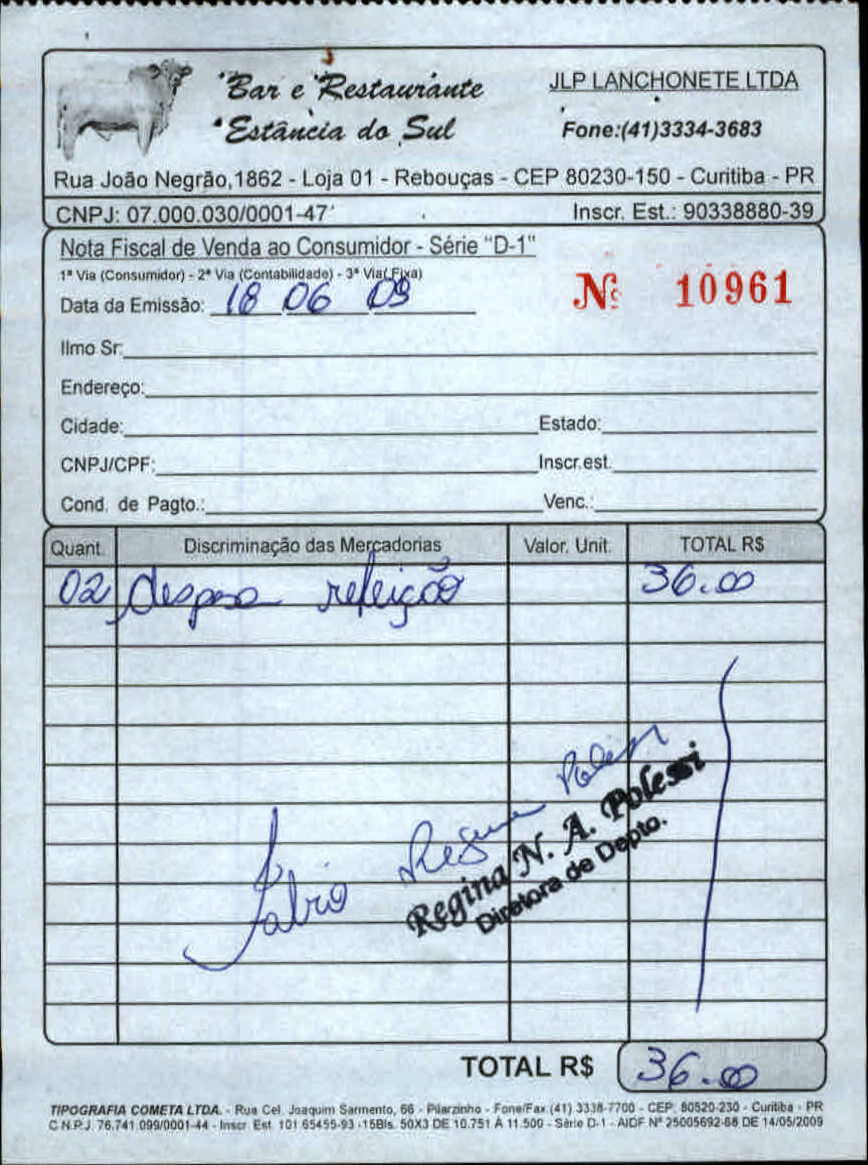 Bar e Restaurante
Estância do Sul
JLP LANCHONETE LTDA
Fone:(41)3334-3683
Rua João Negrão,1862 - Loja 01 - Rebouças - CEP 80230-150 - Curitiba - PR
CNPJ: 07.000.030/0001-47 Inscr. Est.: 90338880-39
Nota Fiscal de Venda ao Consumidor - Série "D-1"
1ª Via (Consumidor) - 2ª Via (Contabilidade) - 3ª Via( Fixa)
Data da Emissão: 18 06 09
Nº 10961
Ilmo Sr.
Endereço:
Cidade: Estado:
CNPJ/CPF: Inscr.est.
Cond. de Pagto.: Venc.:
Quant. Discriminação das Mercadorias Valor. Unit. TOTAL R$
02 despesa refeição 36.00
Regina Polessi
Regina N. A. Polessi
Diretora de Depto.
Fabio
TOTAL R$ 36.00
TIPOGRAFIA COMETA LTDA. - Rua Cel. Joaquim Sarmento, 66 - Pilarzinho - Fone/Fax (41) 3338-7700 - CEP. 80520-230 - Curitiba - PR
C.N.P.J. 76.741.099/0001-44 - Inscr. Est. 101.65455-93 -15Bls. 50X3 DE 10.751 A 11.500 - Série D-1 - AIDF Nº 25005692-68 DE 14/05/2009